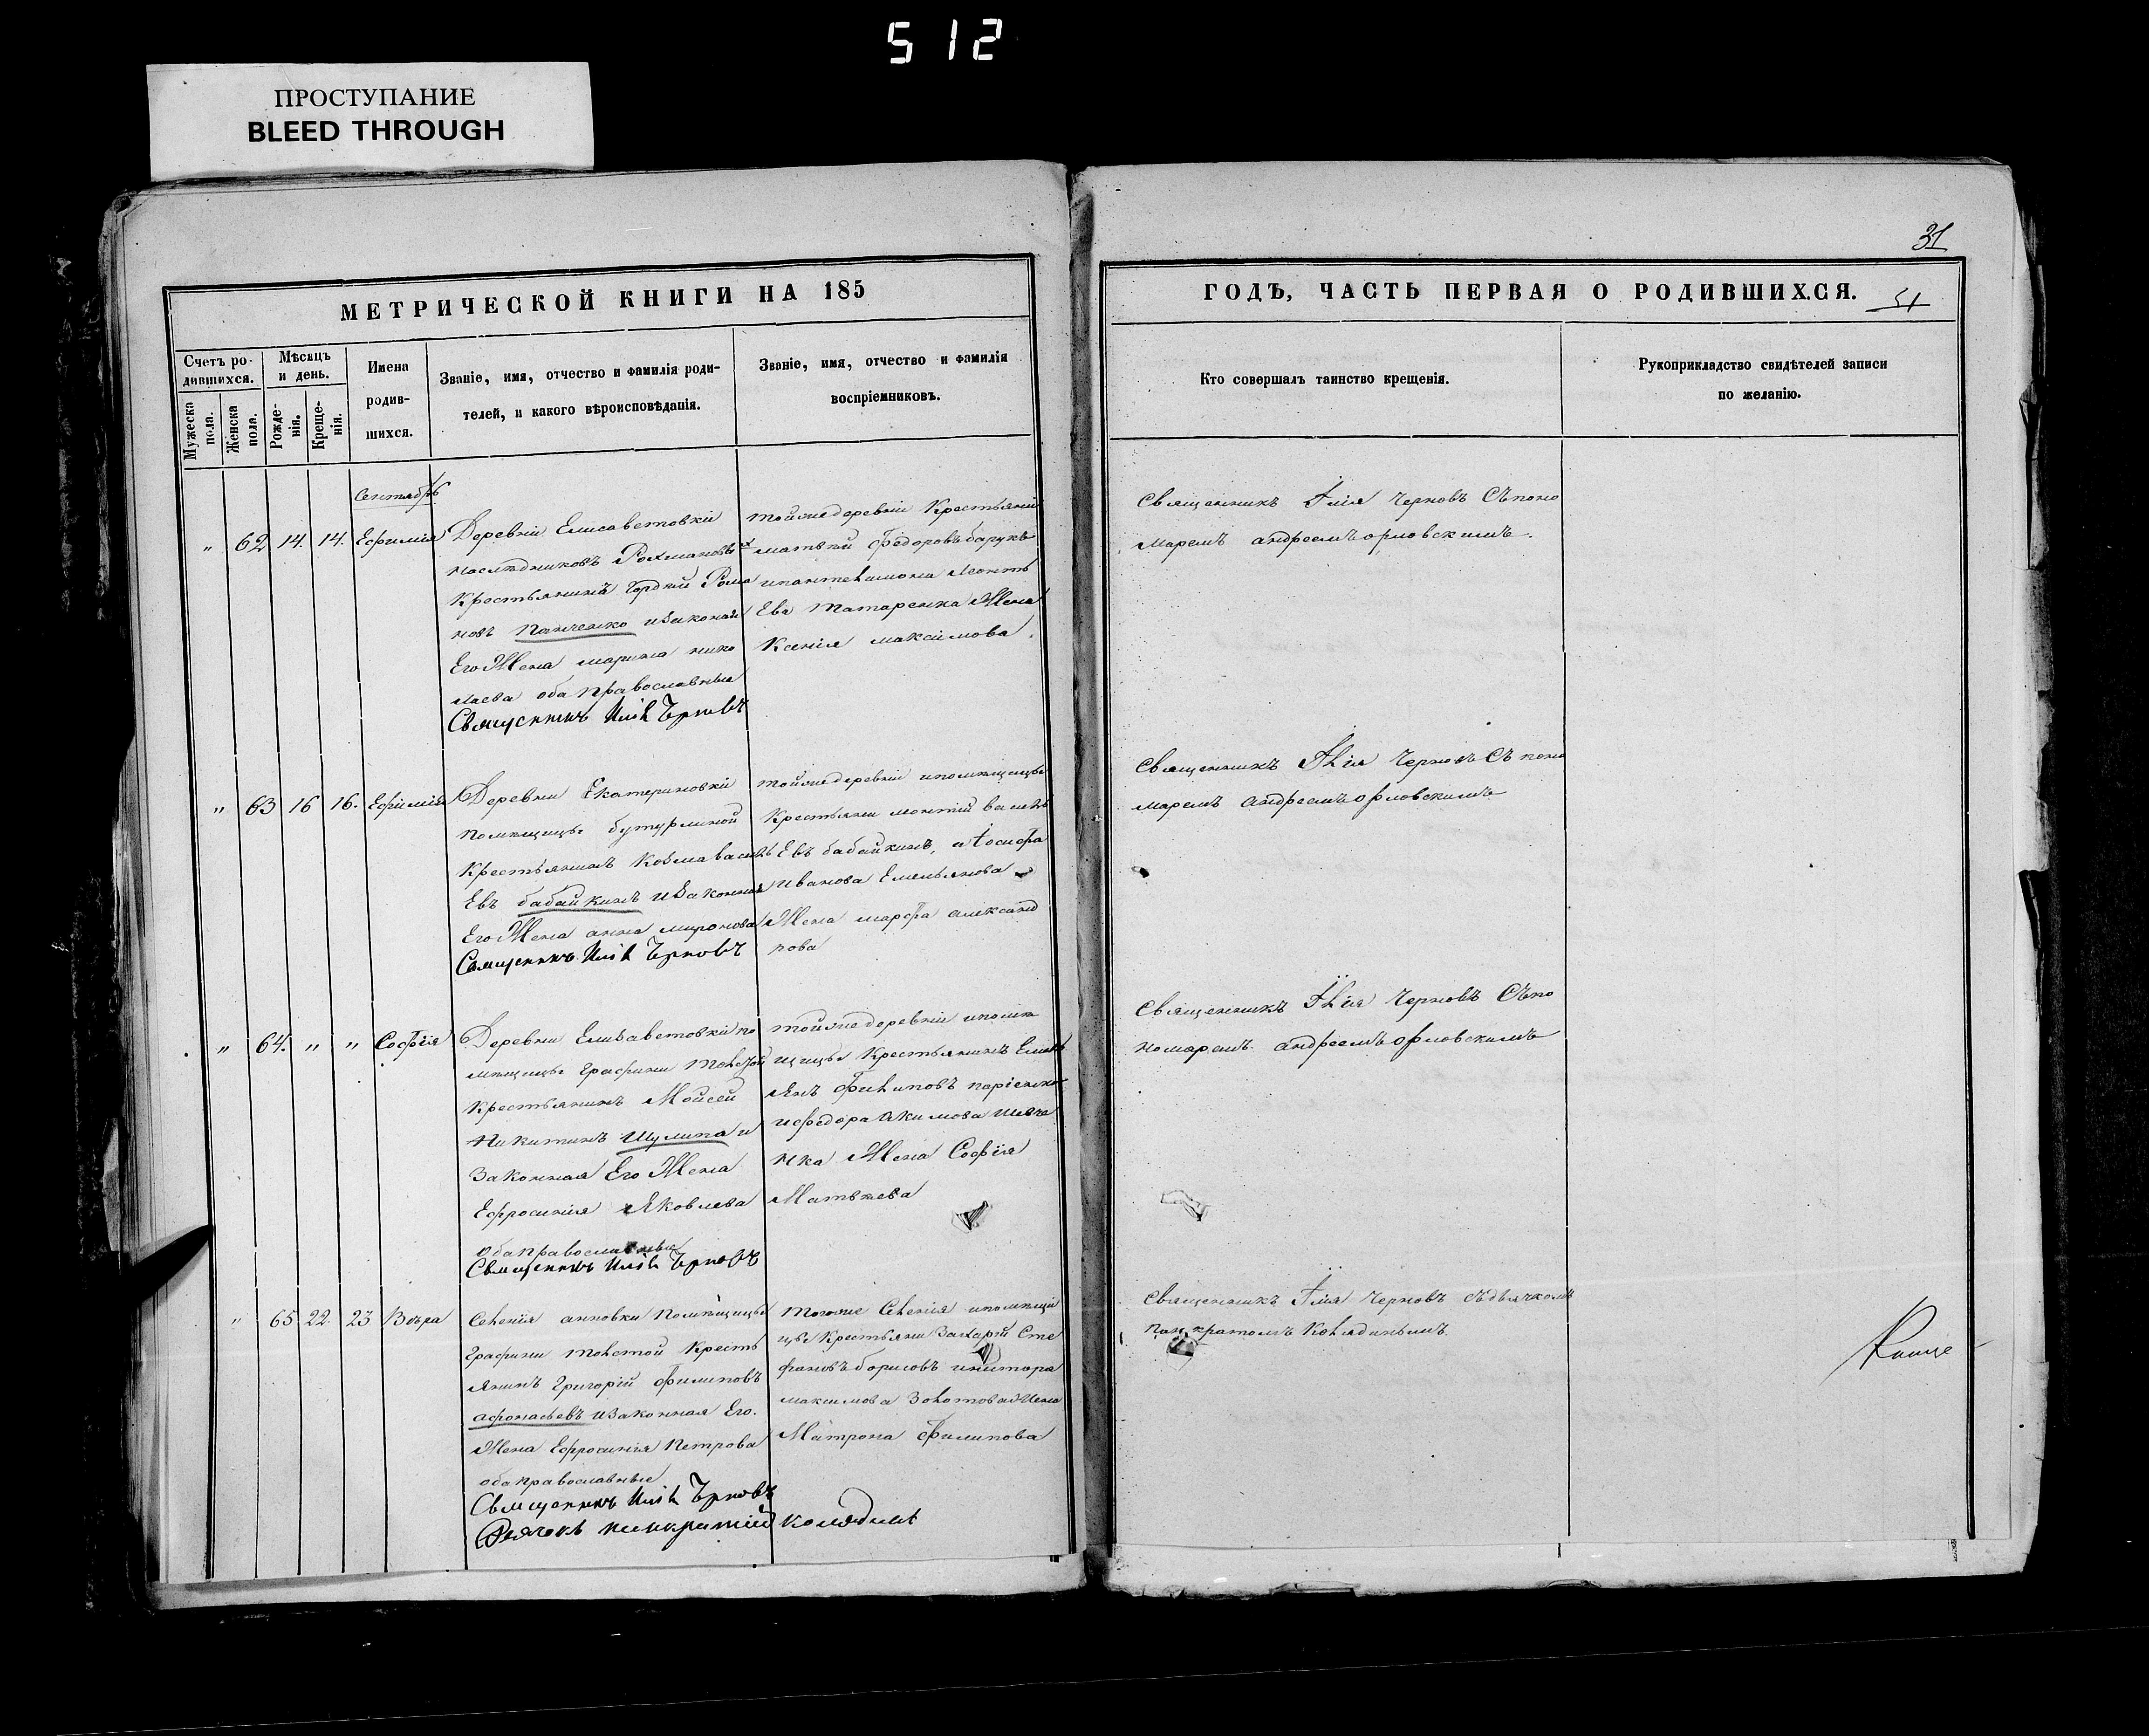 512
ПРОСТУПАНИЕ
BLEED THROUGH
31
МЕТРИЧЕСКОЙ КНИГИ НА 185
Счетъ ро-
дившихся.
Мѣсяцъ
и день.
Имена
родив-
шихся.
Званіе, имя, отчество и фамилія роди-
телей, и какого вѣроисповѣданія.
Званіе, имя, отчество и фамилія
воспріемниковъ.
Мужеска
пола.
Женска
пола.
Рожде-
нія.
Креще-
нія.
ГОДЪ, ЧАСТЬ ПЕРВАЯ О РОДИВШИХСЯ.
Кто совершалъ таинство крещенія.
Рукоприкладство свидѣтелей записи
по желанію.
Сентябрь
" 62 14. 14. Ефимія
Деревни Елисаветовки
наслѣдниковъ Рахмановыхъ
Крестьянинъ Гордѣй Рома
новъ Панченко и законая
Его Жена марина нико
лаева оба православныи
Священникъ Илія Черновъ
тойже деревни Крестьянин
матвѣй Федоровъ
Ева Татаренка Жена
Ксенія максимова.
Священникъ Илія Черновъ Съ поно
маремъ андреемъ орловскимъ.
" 63 16 16. Ефимія
Деревни Екатериновки
помѣщицы бутурлиной
Крестьянинъ Козма василь
Евъ бабайкинъ и законная
Его Жена анна миронова
Священникъ Илія Черновъ
тойже деревни ипомѣщицы
Крестьяни леонтій василь
Евъ бабайкинъ, и Іосифа
иванова Емельянова
Жена марфа александ
рова
Священникъ Илія Черновъ Съ поно
маремъ андреемъ орловскимъ
" 64. " " Софія
Деревни Елизаветовки по
мѣщицы Графини Толстой
Крестьянинъ Мойсей
Никитинъ Шулипа и
Законная Его Жена
Ефросинія Яковлева
Оба православные
Священникъ Илія Черновъ
тойже деревни ипомѣ
щицы Крестьянинъ Емель
янъ Филиповъ
и федора Акимова Шевче
нка Жена Софія
Матвѣева
Священникъ Илія Черновъ Съ по
номаремъ андреемъ орловскимъ
" 65 22. 23 Вѣра
Селенія анновки Помѣщицы
Графини толстой Кресть
янинъ Григорій Филиповъ
афонасьевъ и законная Его.
Жена Ефросинія Петрова
оба православные
Священникъ Илія Черновъ
Дьячокъ панкратій колядинъ
Тогоже Селенія ипомѣщи
цы Крестьяни Захарій Сте
фановъ борисовъ
максимова Золотова Жена
Матрона Филипова
Священникъ Илія Черновъ Съ дьячкомъ
панкратомъ Колядинымъ.